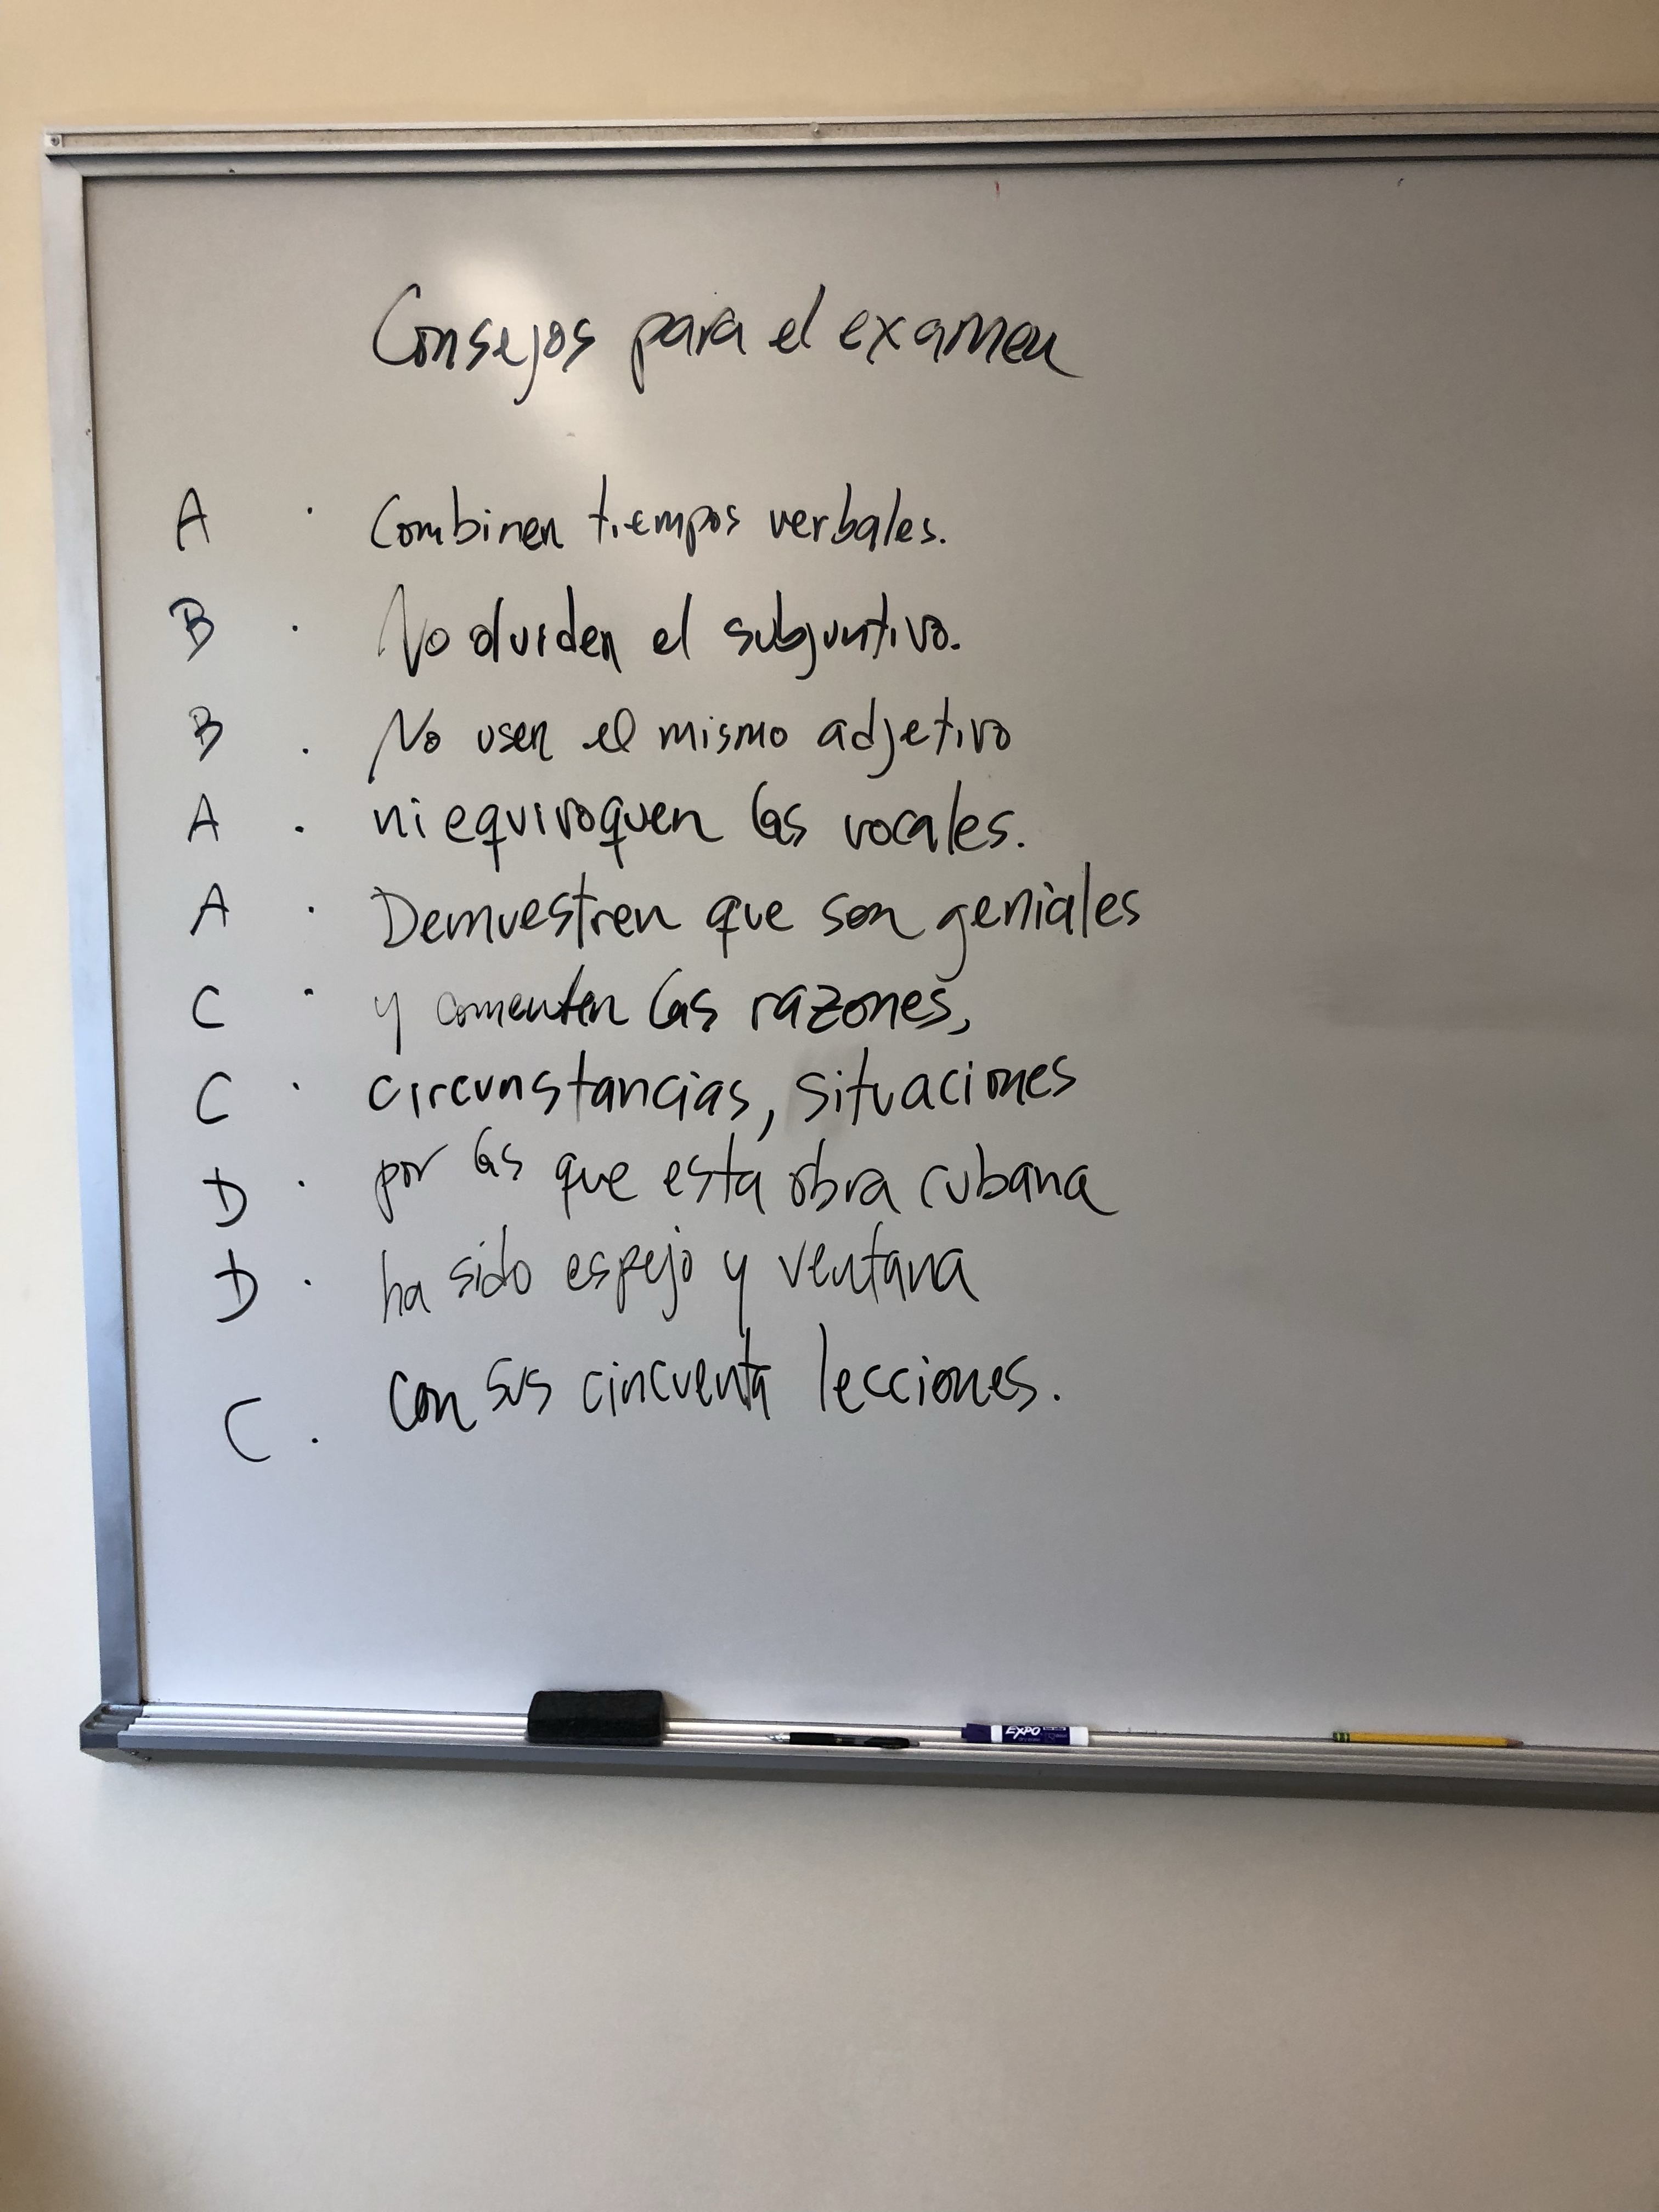 Consejos para el examen
A . Combinen tiempos verbales.
B . No olviden el subjuntivo.
B . No usen el mismo adjetivo
A . ni equivoquen las vocales.
A . Demuestren que son geniales
C . y comenten las razones,
C . circunstancias, situaciones
D . por las que esta obra cubana
D . ha sido espejo y ventana
C . con sus cincuenta lecciones.
EXPO